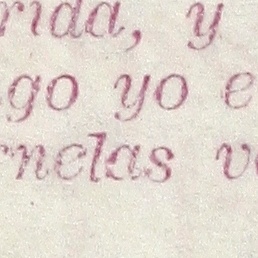 rida, y
go yo e
rnelas v